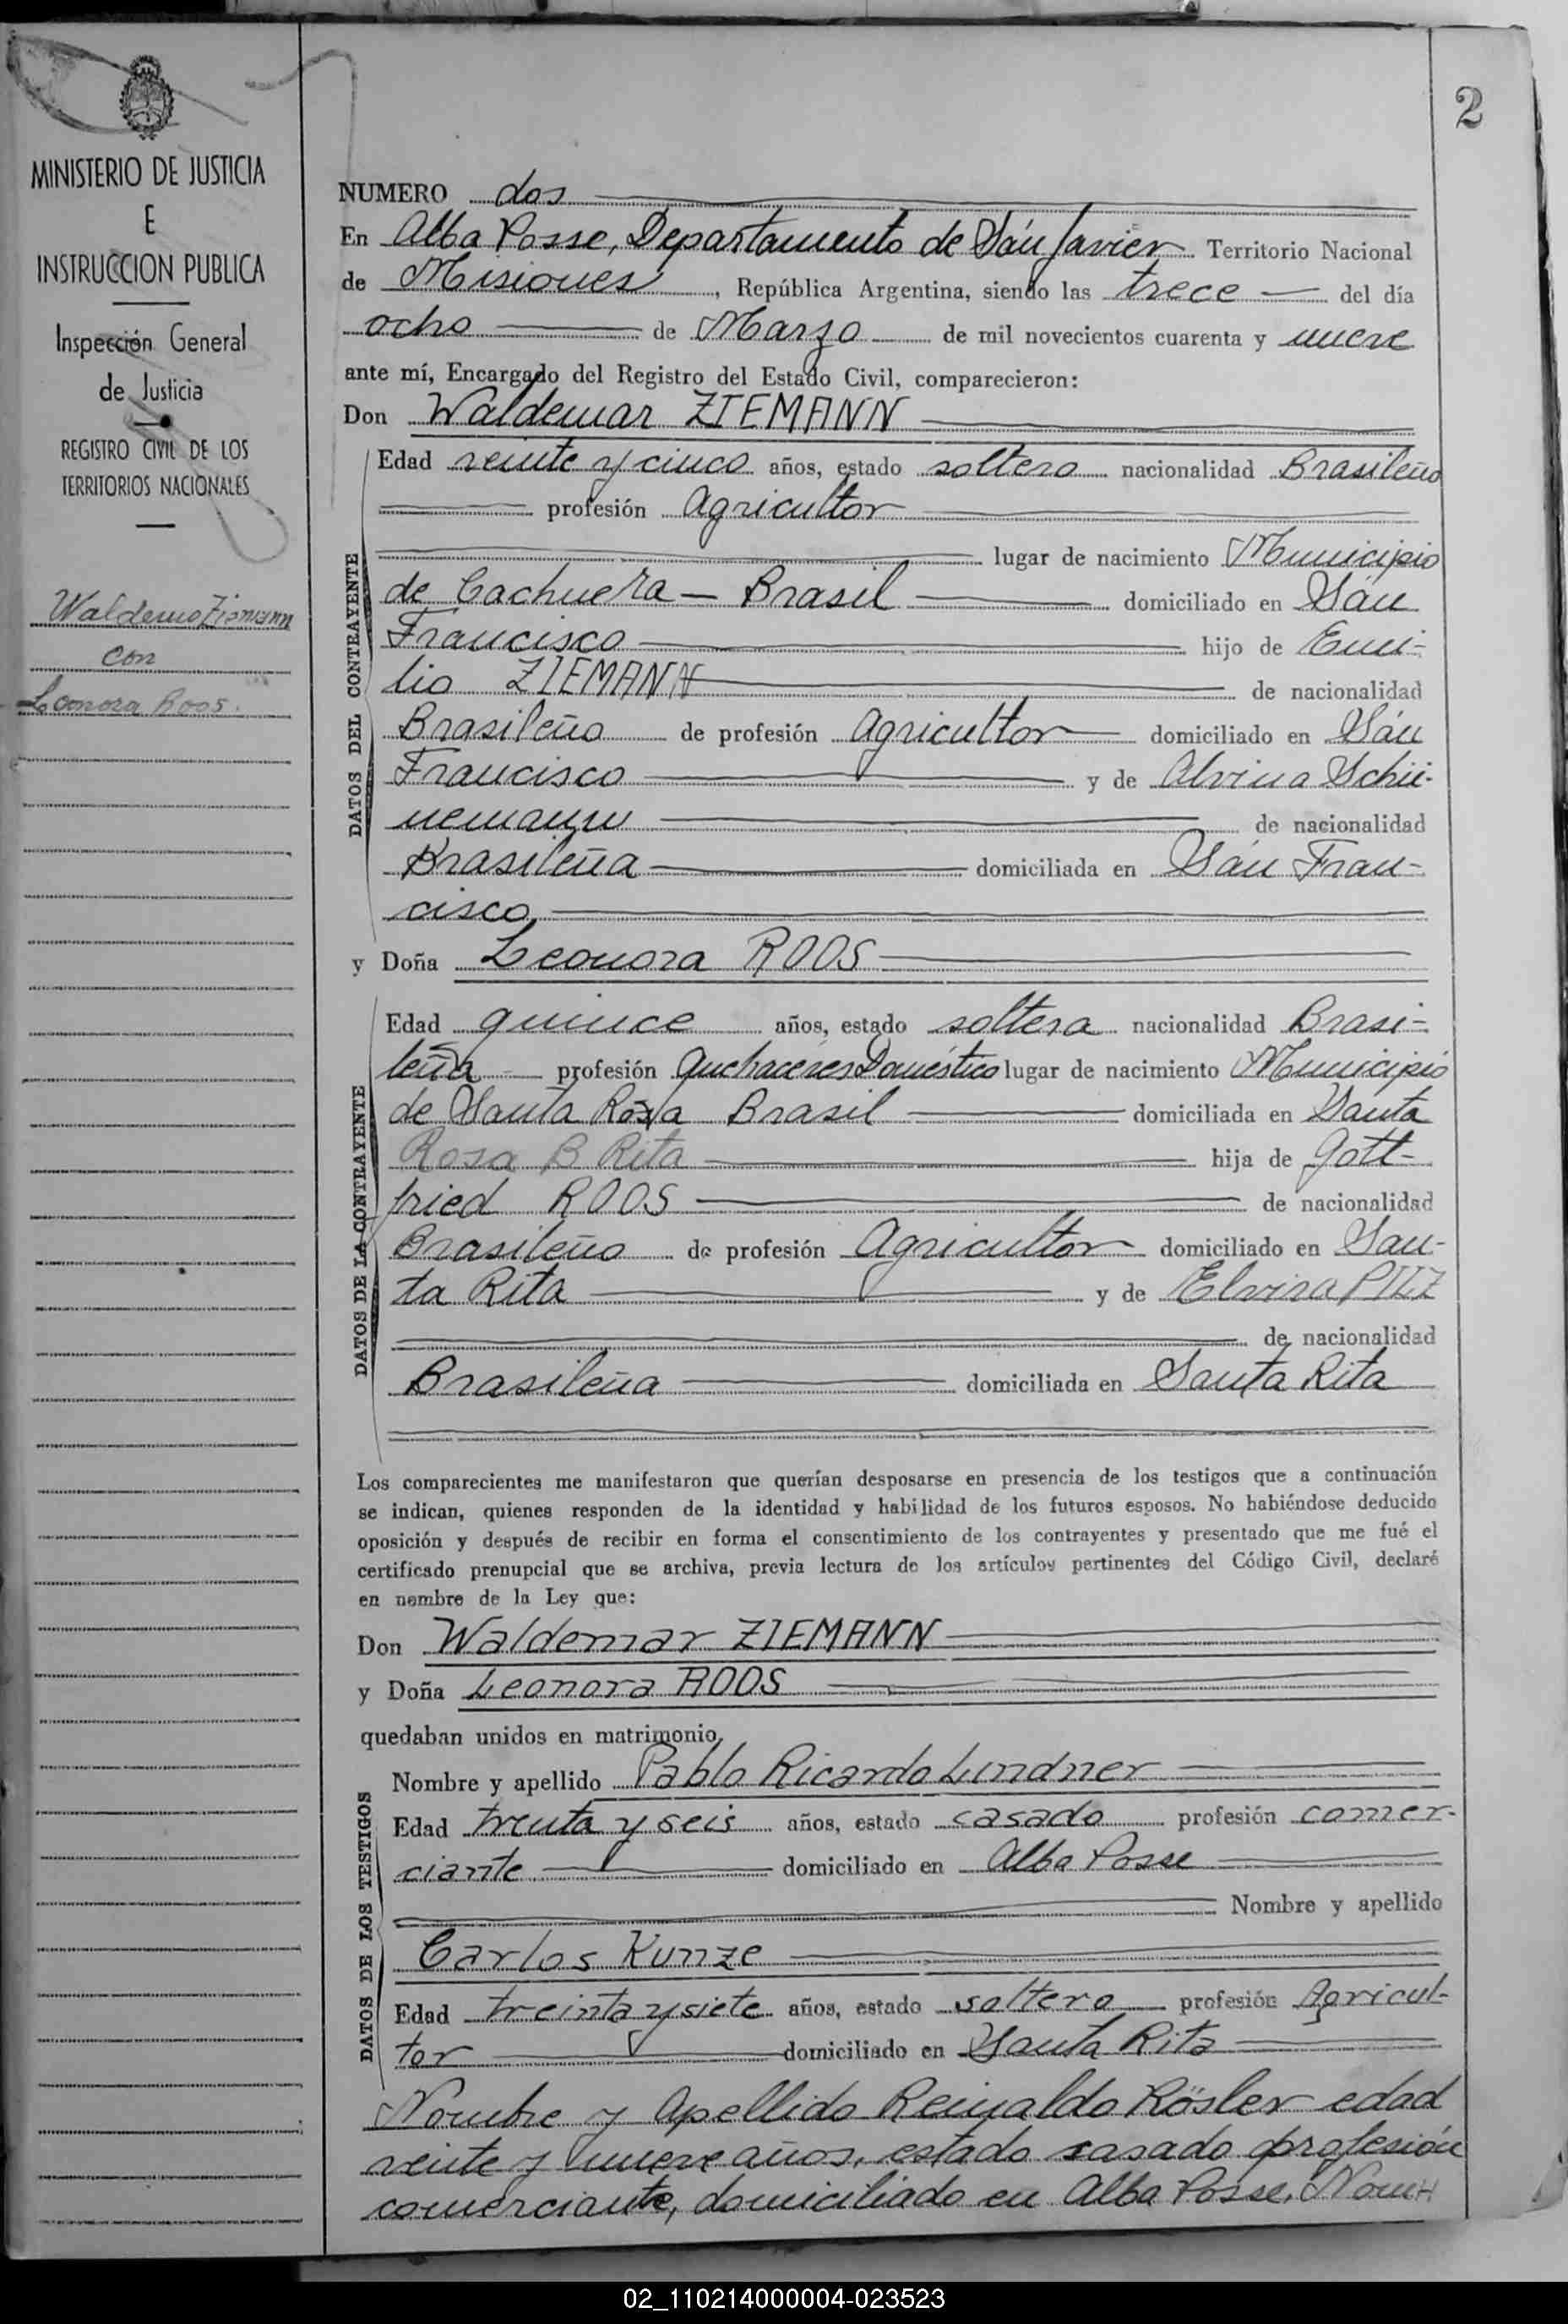 2
MINISTERIO DE JUSTICIA
E
INSTRUCCION PUBLICA
Inspección General
de Justicia
REGISTRO CIVIL DE LOS
TERRITORIOS NACIONALES
Waldemo Ziemann
con
Leonora Roos.
NUMERO dos
En Alba Posse, Departamento de Sán Javier Territorio Nacional
de Misiones, República Argentina, siendo las trece del día
ocho de Marzo de mil novecientos cuarenta y nueve
ante mí, Encargado del Registro del Estado Civil, comparecieron:
Don Waldemar ZIEMANN
DATOS DEL CONTRAYENTE
Edad veinte y cinco años, estado soltero nacionalidad Brasileño
profesión Agricultor
lugar de nacimiento Municipio
de Cachuera - Brasil domiciliado en Sán
Francisco hijo de Emi-
lio ZIEMANN de nacionalidad
Brasileño de profesión Agricultor domiciliado en Sán
Francisco y de Alvina Schü-
nemann de nacionalidad
Brasileña domiciliada en Sán Fran-
cisco,
y Doña Leonora ROOS
DATOS DE LA CONTRAYENTE
Edad quince años, estado soltera nacionalidad Brasi-
leña profesión Quehaceres Doméstico lugar de nacimiento Municipio
de Santa Rosa Brasil domiciliada en Santa
Rosa B Rita hija de Gott-
fried ROOS de nacionalidad
Brasileño de profesión Agricultor domiciliado en San-
ta Rita y de Elvira PILZ
de nacionalidad
Brasileña domiciliada en Santa Rita
Los comparecientes me manifestaron que querían desposarse en presencia de los testigos que a continuación
se indican, quienes responden de la identidad y habilidad de los futuros esposos. No habiéndose deducido
oposición y después de recibir en forma el consentimiento de los contrayentes y presentado que me fué el
certificado prenupcial que se archiva, previa lectura de los artículos pertinentes del Código Civil, declaré
en nombre de la Ley que:
Don Waldemar ZIEMANN
y Doña Leonora ROOS
quedaban unidos en matrimonio,
DATOS DE LOS TESTIGOS
Nombre y apellido Pablo Ricardo Lindner
Edad trenta y seis años, estado casado profesión comer-
ciante domiciliado en Alba Posse
Nombre y apellido
Carlos Kunze
Edad treinta y siete años, estado soltero profesión Agricul-
tor domiciliado en Santa Rita
Nombre y Apellido Reinaldo Rösler edad
veinte y nueve años, estado casado profesión
comerciante, domiciliado en Alba Posse, Nom
02_110214000004-023523